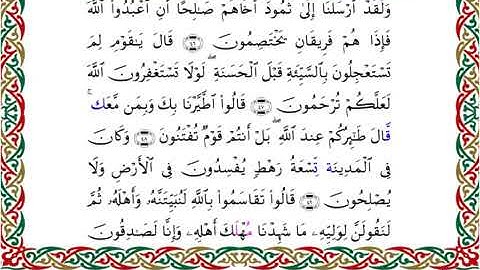 وَلَقَدْ أَرْسَلْنَآ إِلَىٰ ثَمُودَ أَخَاهُمْ صَٰلِحًا أَنِ ٱعْبُدُوا۟ ٱللَّهَ
فَإِذَا هُمْ فَرِيقَانِ يَخْتَصِمُونَ ﴿٤٥﴾ قَالَ يَٰقَوْمِ لِمَ
تَسْتَعْجِلُونَ بِٱلسَّيِّئَةِ قَبْلَ ٱلْحَسَنَةِ ۖ لَوْلَا تَسْتَغْفِرُونَ ٱللَّهَ
لَعَلَّكُمْ تُرْحَمُونَ ﴿٤٦﴾ قَالُوا۟ ٱطَّيَّرْنَا بِكَ وَبِمَن مَّعَكَ ۚ
قَالَ طَٰٓئِرُكُمْ عِندَ ٱللَّهِ ۖ بَلْ أَنتُمْ قَوْمٌ تُفْتَنُونَ ﴿٤٧﴾ وَكَانَ
فِى ٱلْمَدِينَةِ تِسْعَةُ رَهْطٍ يُفْسِدُونَ فِى ٱلْأَرْضِ وَلَا
يُصْلِحُونَ ﴿٤٨﴾ قَالُوا۟ تَقَاسَمُوا۟ بِٱللَّهِ لَنُبَيِّتَنَّهُۥ وَأَهْلَهُۥ ثُمَّ
لَنَقُولَنَّ لِوَلِيِّهِۦ مَا شَهِدْنَا مَهْلِكَ أَهْلِهِۦ وَإِنَّا لَصَٰدِقُونَ